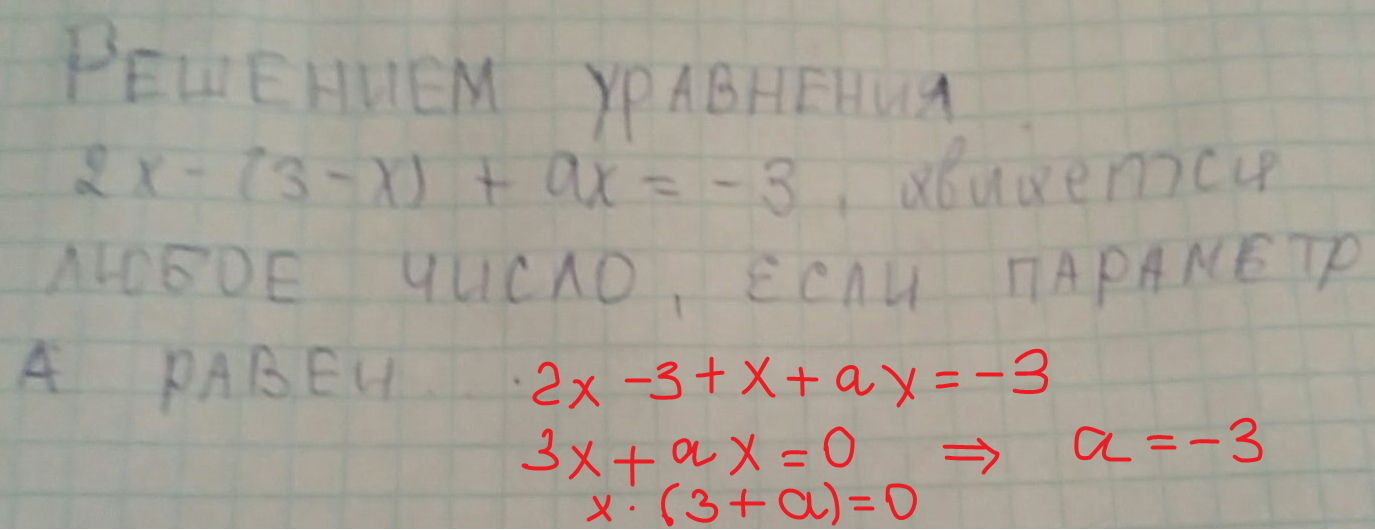 РЕШЕНИЕМ УРАВНЕНИЯ
2x - (3 - x) + ax = -3, является
ЛЮБОЕ ЧИСЛО, ЕСЛИ ПАРАМЕТР
А РАВЕН... 2x - 3 + x + ax = -3
3x + ax = 0 ⇒ a = -3
x · (3 + a) = 0